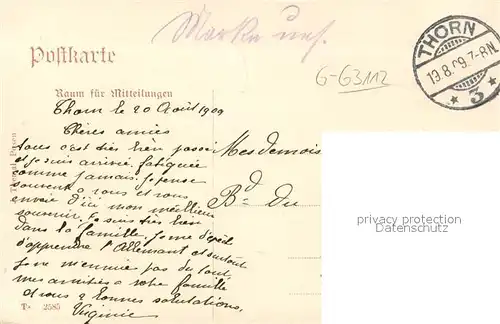 Marke
THORN
19.8.09.7-8N.
* 3 *
Postkarte
G-G3112
Raum für Mitteilungen
Thorn le 20 Août 1909
Chères amies
tous c'est très bien passé
et je suis arrivé fatiguée
comme jamais. Je pense
souvent a vous et vous
envoie d'ici mon meilleur
souvenir. Je suis très bien
dans la famille, je me
d'apprendre l'Allemand et surtout
je ne m'ennuie pas du tout,
mes amitiés a votre famille
et vous a bonnes salutations.
Virginie
T. 2585
Mesdemois
Bd. Du
privacy protection
Datenschutz